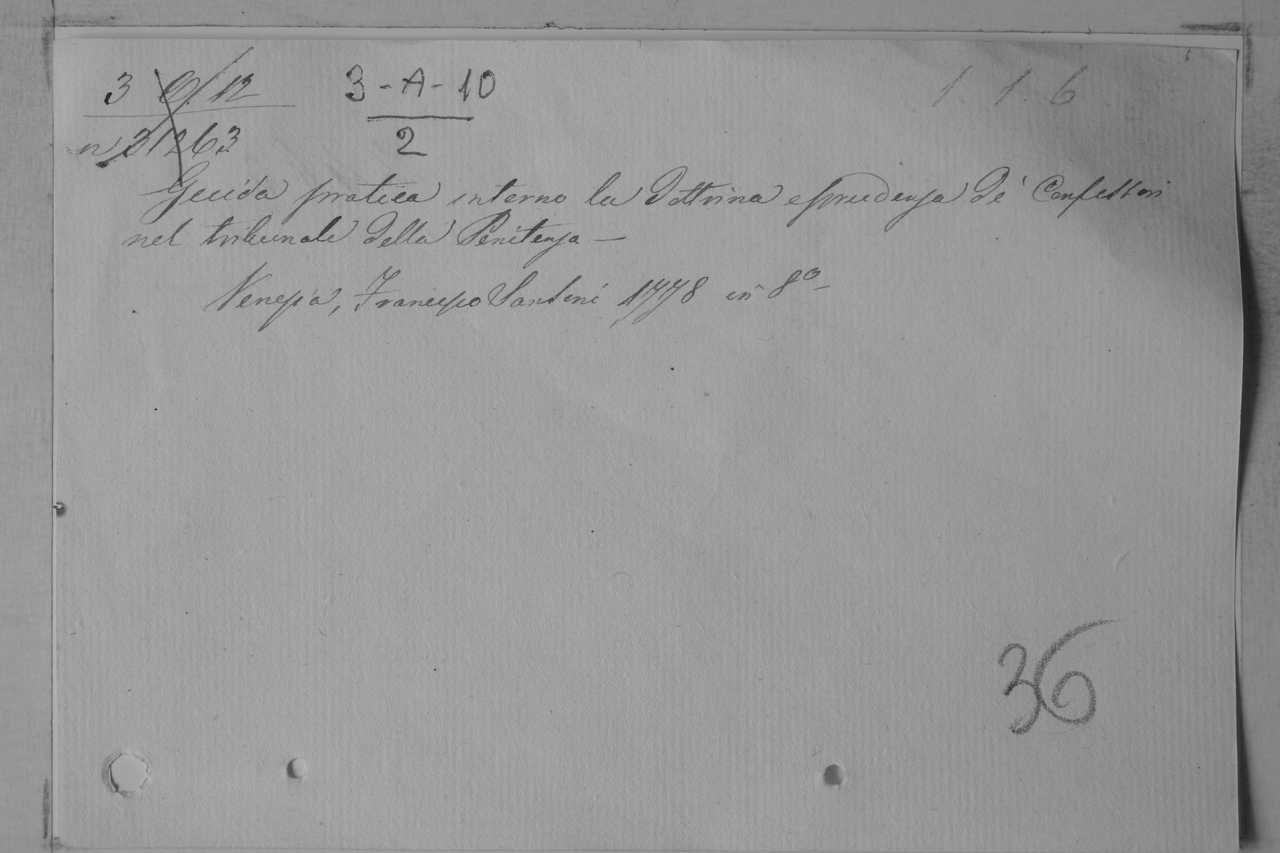 3 O/12 3-A-10 1. 1. 6
n 31263 2
Guida pratica intorno la Dottrina e prudenza de' Confessori
nel tribunale della Penitenza —
Venezia, Francesco Sansoni 1778 in 8º —
36